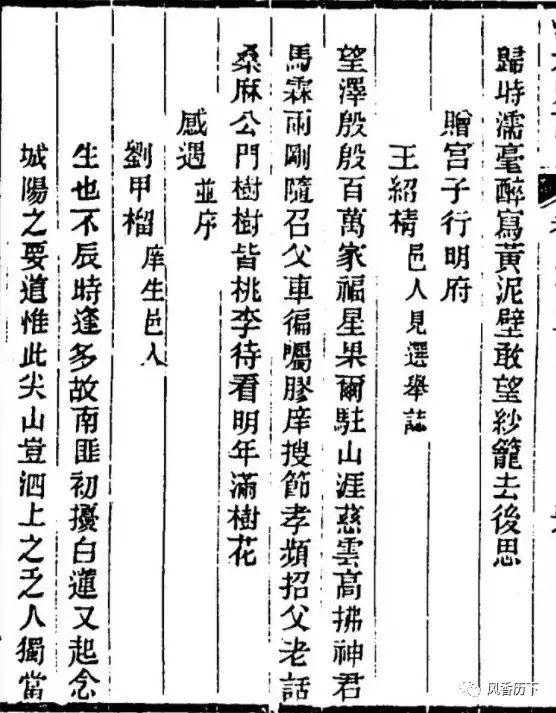 歸時濡毫醉寫黃泥壁敢望紗籠去後思
贈宮子行明府
王紹精邑人見選舉誌
望澤殷殷百萬家福星果爾駐山涯慈雲高拂神君
馬霖雨剛隨召父車徧囑膠庠搜節孝頻招父老話
桑麻公門樹樹皆桃李待看明年滿樹花
感遇並序
劉甲榴庠生邑人
生也不辰時逢多故南匪初擾白蓮又起念
城陽之要道惟此尖山豈泗上之乏人獨當
风香历下